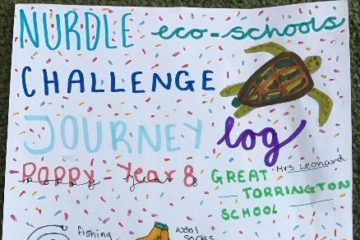 NURDLE eco-schools
CHALLENGE
JOURNEY log
Poppy - Year 8
GREAT Mrs Leonard
TORRINGTON
SCHOOL
fishing
wool
socks